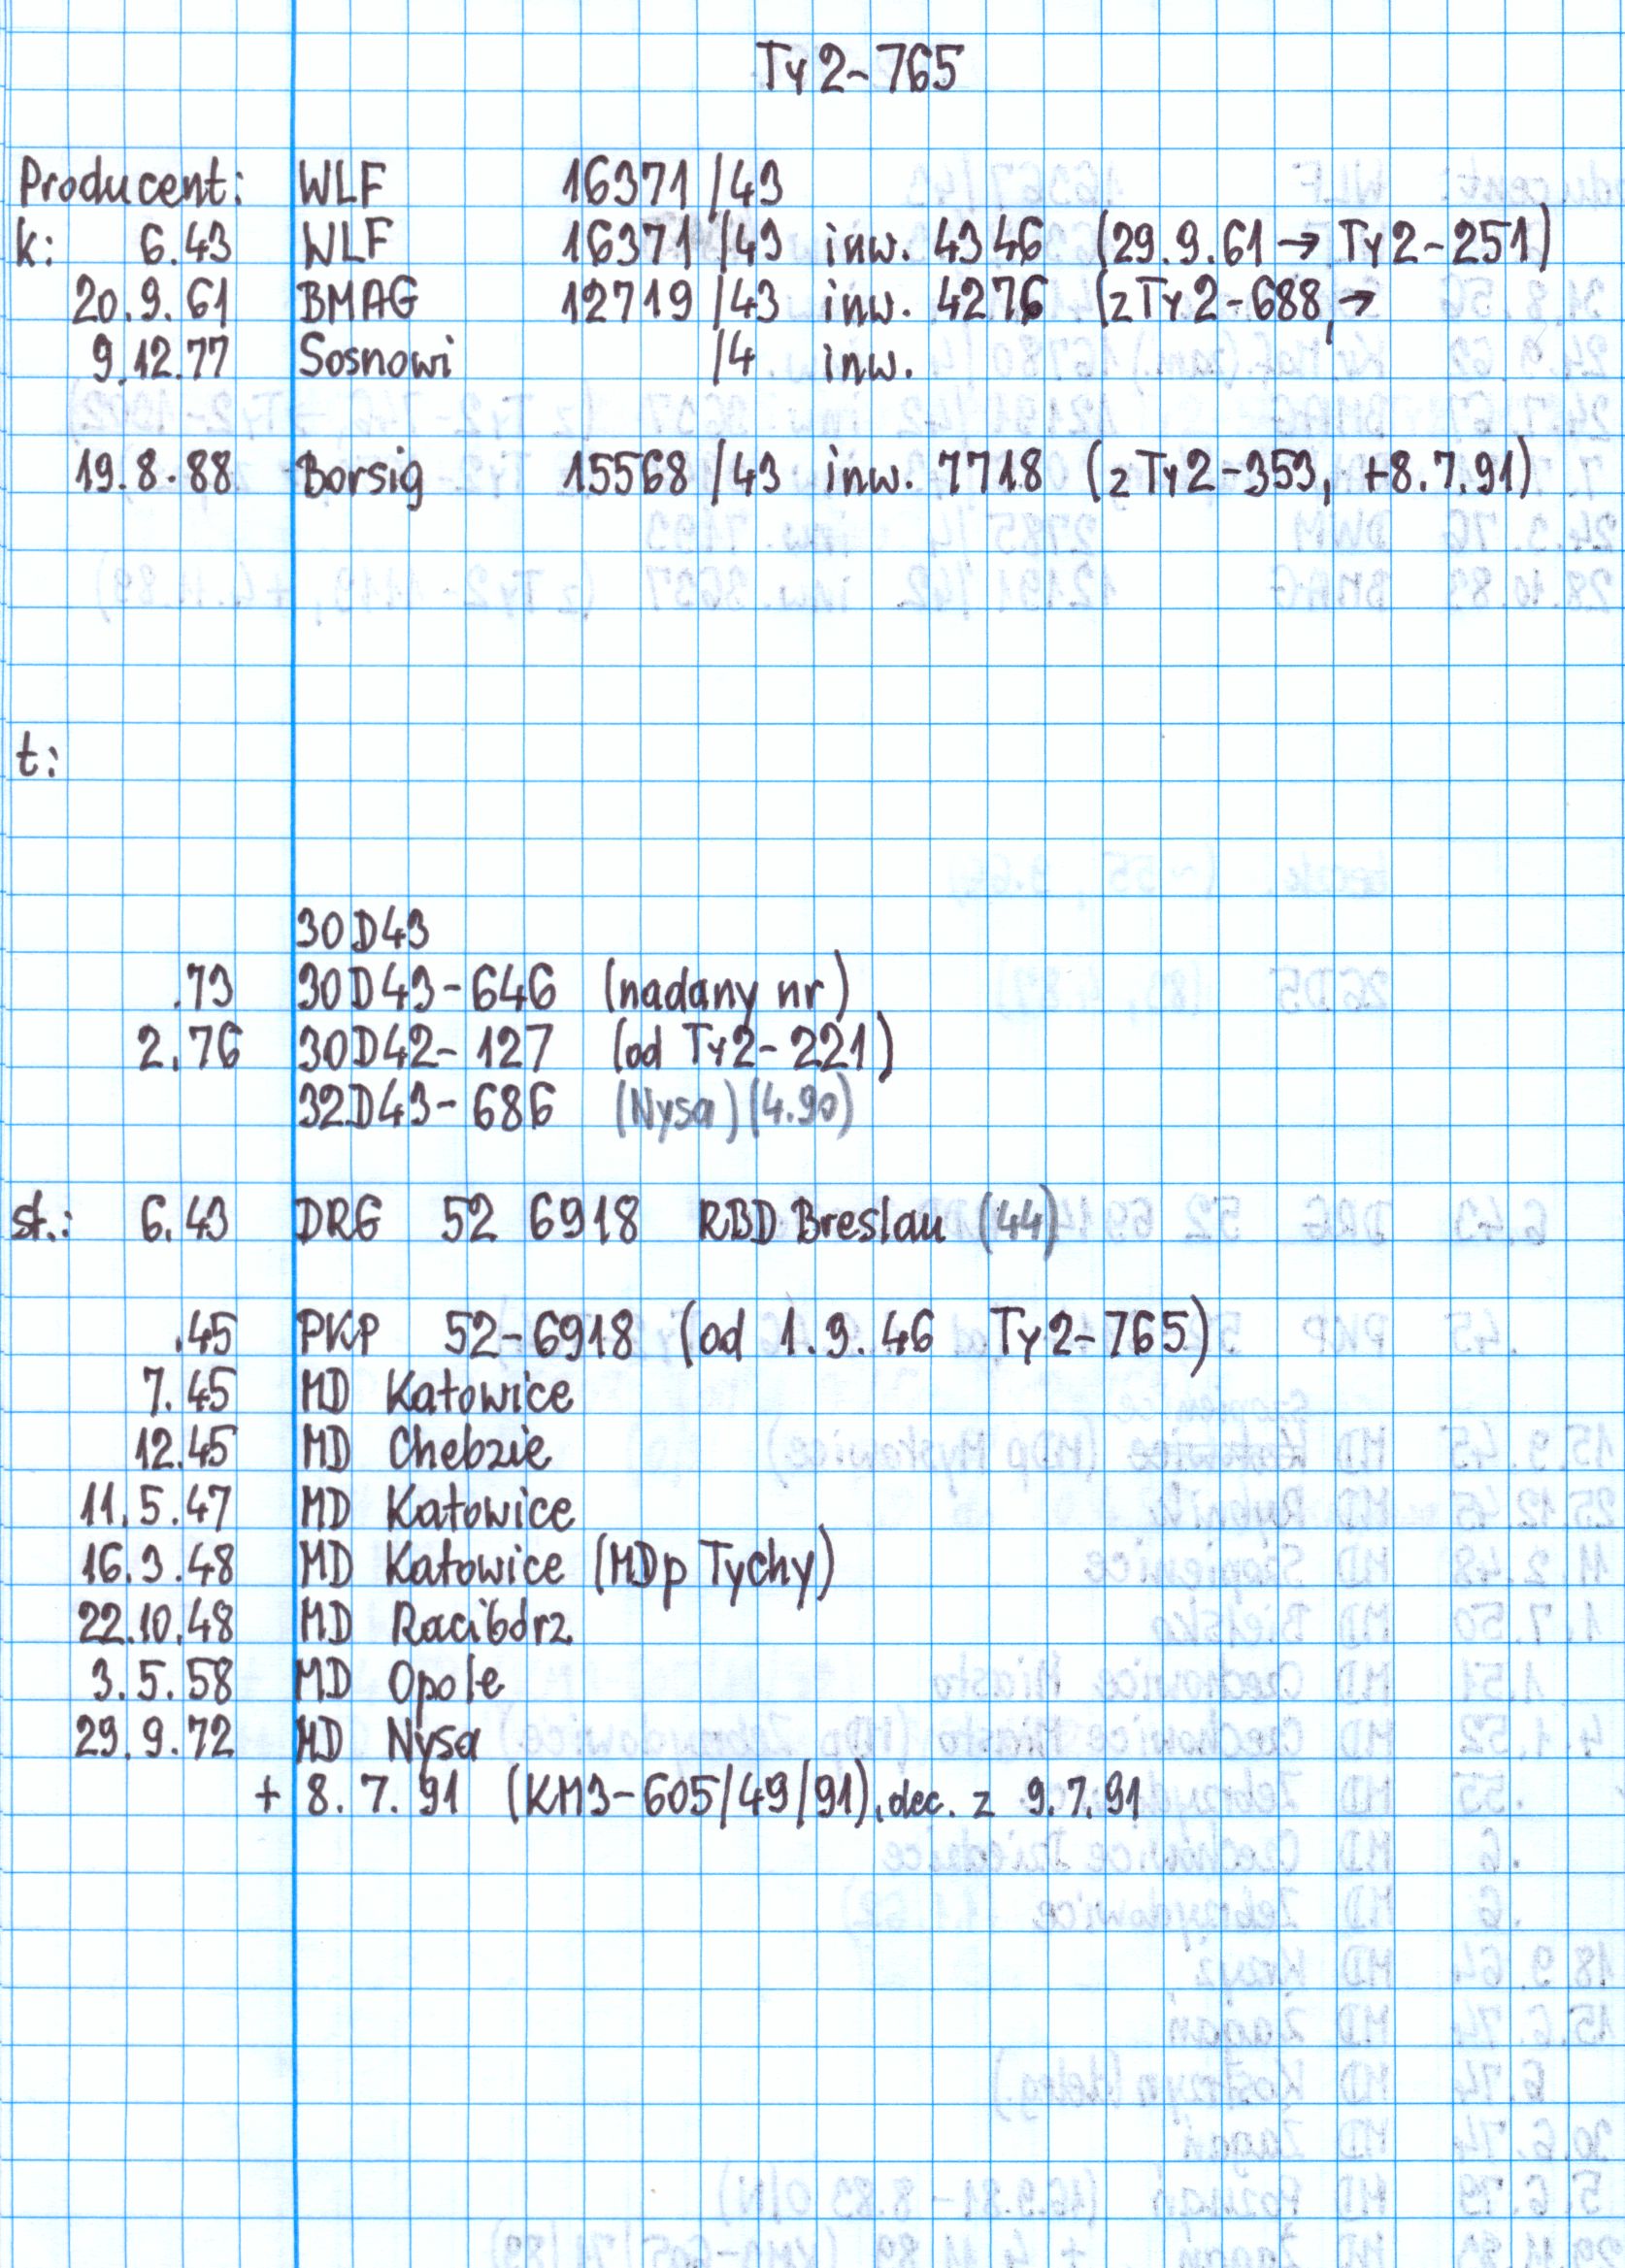 Ty2-765
Producent: WLF 16371/43
k: 6.43 WLF 16371/43 inw. 4346 (29.9.61 → Ty2-251)
20.9.61 BMAG 12719/43 inw. 4276 (z Ty2-688, →
9.12.77 Sosnowi /4 inw.
19.8.88 Borsig 15568/43 inw. 7718 (z Ty2-353, +8.7.91)
t:
30D43
.73 30D43-646 (nadany nr)
2.76 30D42-127 (od Ty2-221)
32D43-686 (Nysa) (4.90)
st.: 6.43 DRG 52 6918 RBD Breslau (44)
.45 PKP 52-6918 (od 1.9.46 Ty2-765)
7.45 MD Katowice
12.45 MD Chebzie
11.5.47 MD Katowice
16.3.48 MD Katowice (MDp Tychy)
22.10.48 MD Racibórz
3.5.58 MD Opole
29.9.72 MD Nysa
+ 8.7.91 (KM3-605/49/91), dec. z 9.7.91